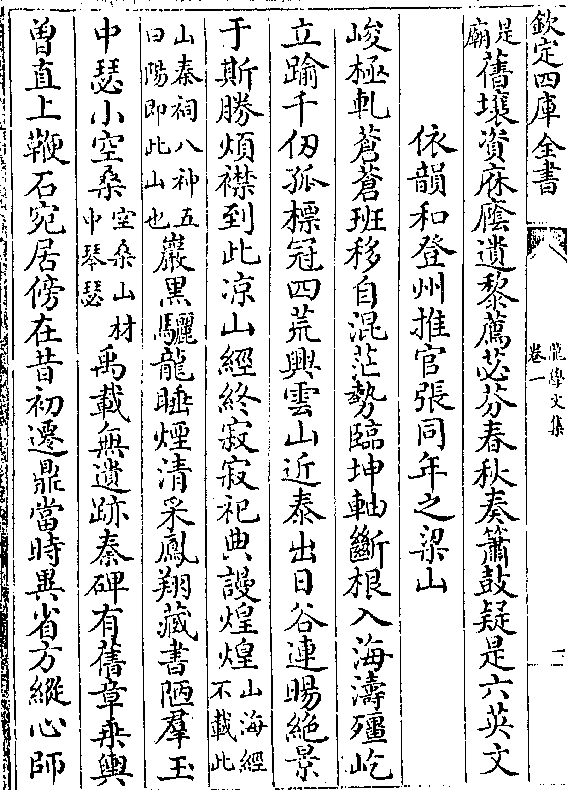 欽定四庫全書
龍學文集
卷一
是廟舊壤資庥廕遺黎薦苾芬春秋奏簫鼓疑是六英文
依韻和登州推官張同年之梁山
峻極軋蒼蒼班移自混茫勢臨坤軸斷根入海濤殭屹
立踰千仞孤標冠四荒興雲山近泰出日谷連暘絶景
于斯勝煩襟到此凉山經終寂寂祀典謾煌煌山海經不載此
山秦祠八神五曰陽即此山也巖黑驪龍睡煙清采鳳翔藏書陋羣玉
中瑟小空桑空桑山材中琴瑟禹載無遺跡秦碑有舊章乗輿
曽直上鞭石宛居傍在昔初遷鼎當時異省方縱心師